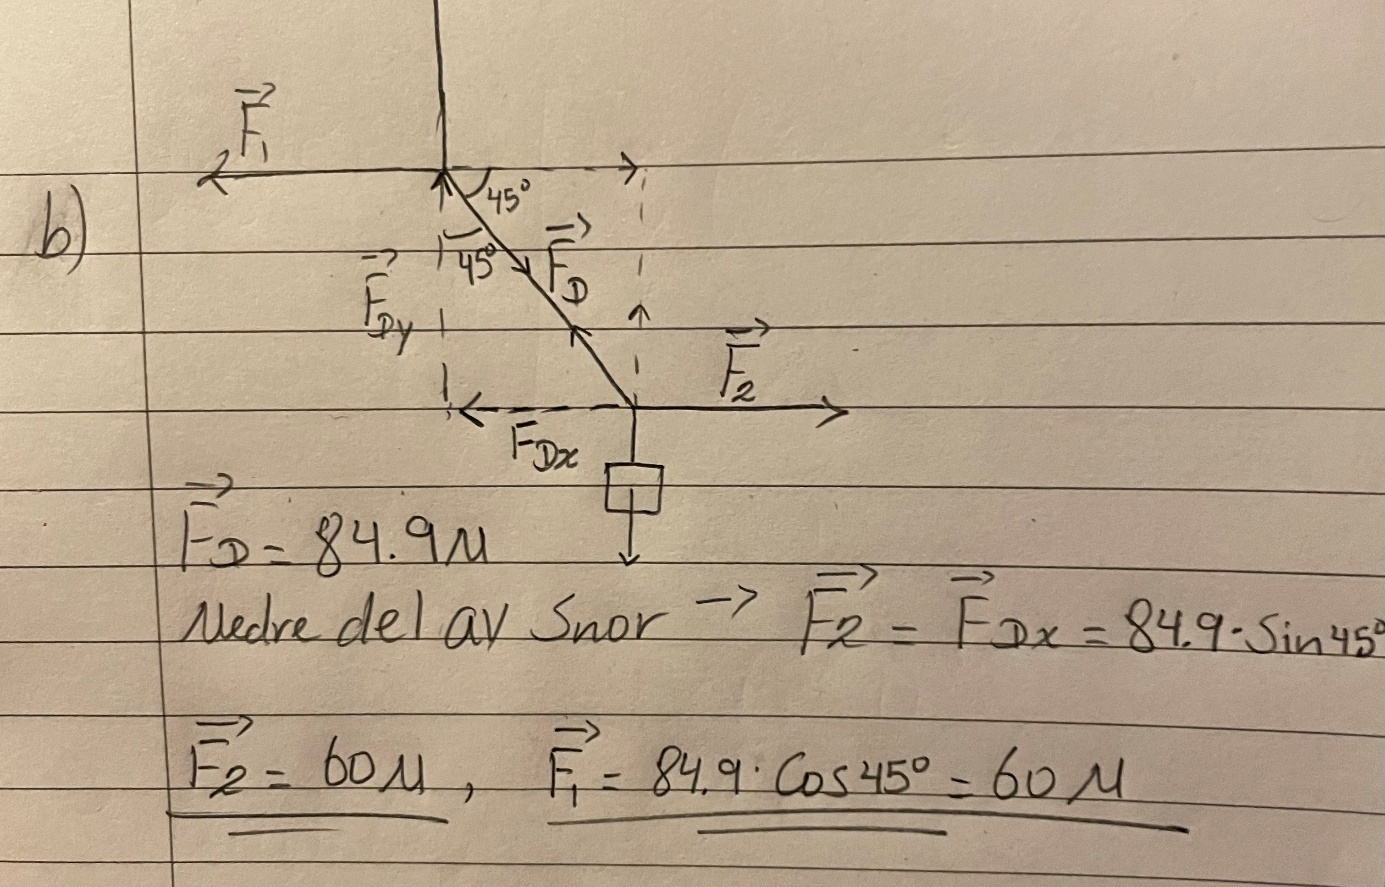 F₁
b)
45°
45°
F_D
F_Dy
F₂
F_Dx
F_D = 84.9N
Nedre del av Snor → F₂ = F_Dx = 84.9·Sin45°
F₂ = 60N, F₁ = 84.9·Cos45° = 60N